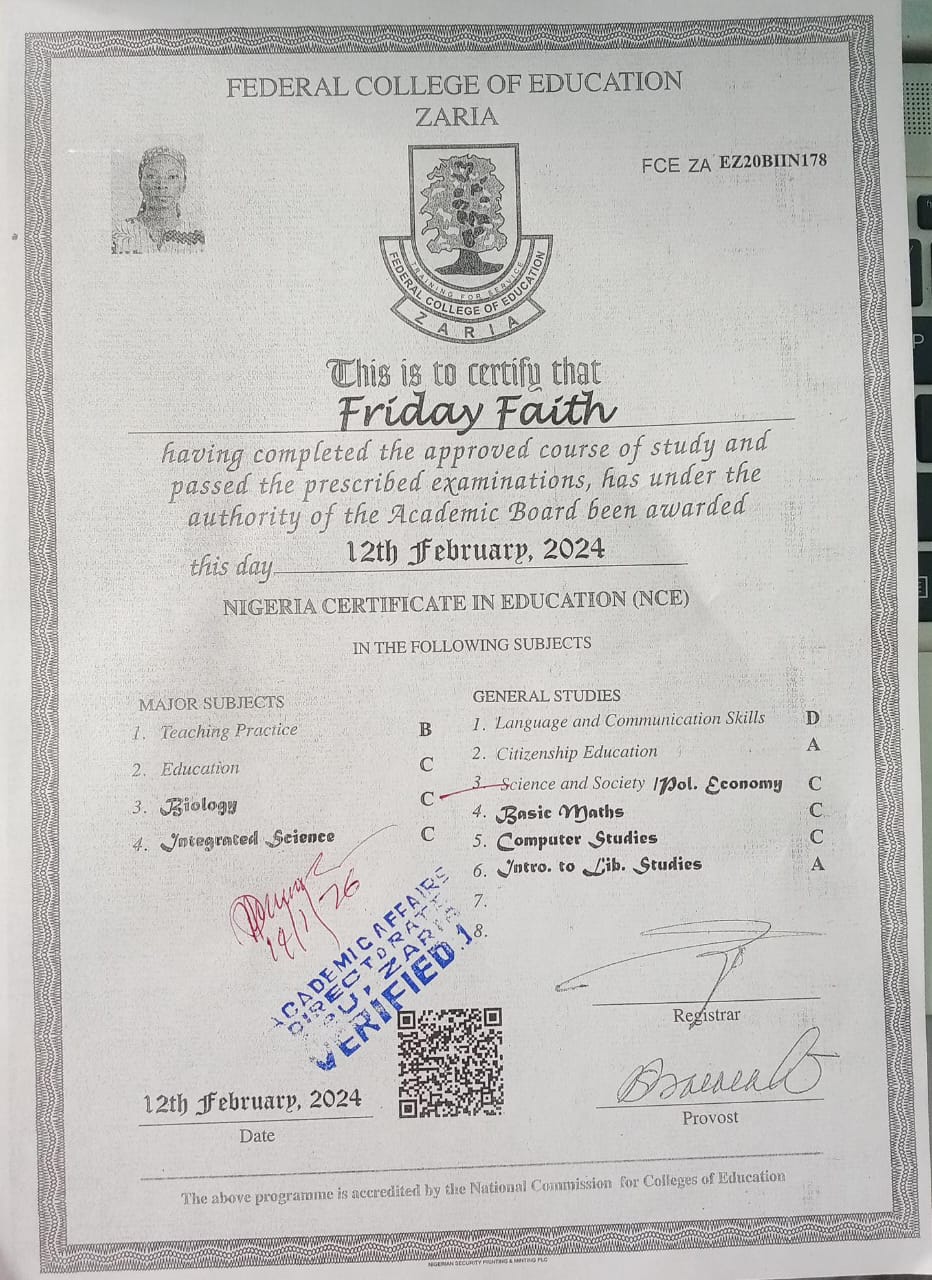 FEDERAL COLLEGE OF EDUCATION
ZARIA
FCE ZA EZ20BIIN178
TRAINING FOR SERVICE
FEDERAL COLLEGE OF EDUCATION
ZARIA
This is to certify that
Friday Faith
having completed the approved course of study and
passed the prescribed examinations, has under the
authority of the Academic Board been awarded
this day 12th February, 2024
NIGERIA CERTIFICATE IN EDUCATION (NCE)
IN THE FOLLOWING SUBJECTS
MAJOR SUBJECTS
1. Teaching Practice B
2. Education C
3. Biology C
4. Integrated Science C
GENERAL STUDIES
1. Language and Communication Skills D
2. Citizenship Education A
3. Science and Society /Pol. Economy C
4. Basic Maths C
5. Computer Studies C
6. Intro. to Lib. Studies A
7.
8.
ACADEMIC AFFAIRS
DIRECTORATE
ZARIA
VERIFIED.1
Registrar
Provost
12th February, 2024
Date
The above programme is accredited by the National Commission for Colleges of Education
NIGERIAN SECURITY PRINTING & MINTING PLC